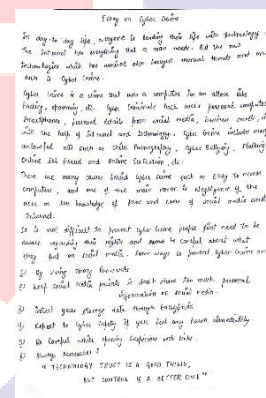 Essay on Cyber Crime
In day-to-day life, everyone is leading their life with technology.
The Internet has everything that a man needs. But the
technologies which has also brought several threats and one
such is Cyber Crime.
Cyber Crime is a crime that uses a computer for an attack like
hacking, spamming, etc. Cyber Criminals hack user's personal computers
Smartphones, personal details from social media, business secrets,
with the help of internet and technology. Cyber Crime includes many
unlawful acts such as Child Pornography, Cyber Bullying, Stalking
Online Job fraud and online Sextortion, etc.
There are many causes behind Cyber crime such as Easy to access
computers, and one of the main is Negligence of the
user or low knowledge of and of social media and
Internet.
It is not difficult to prevent cyber Crime people first need to be
aware regarding their rights and be careful about what
they put on social media. Some ways to prevent Cyber Crime are
1) By Using strong Passwords
2) Keep social media private & don't share too much personal
information on social media.
3) your storage data through Encryption
4) Report to Cyber safety if you feel any harm immediately
5) Be Careful while opening Suspicious web links.
6) Always remember!
"TECHNOLOGY TRUST IS A GOOD THING,
BUT CONTROL IS A BETTER ONE"